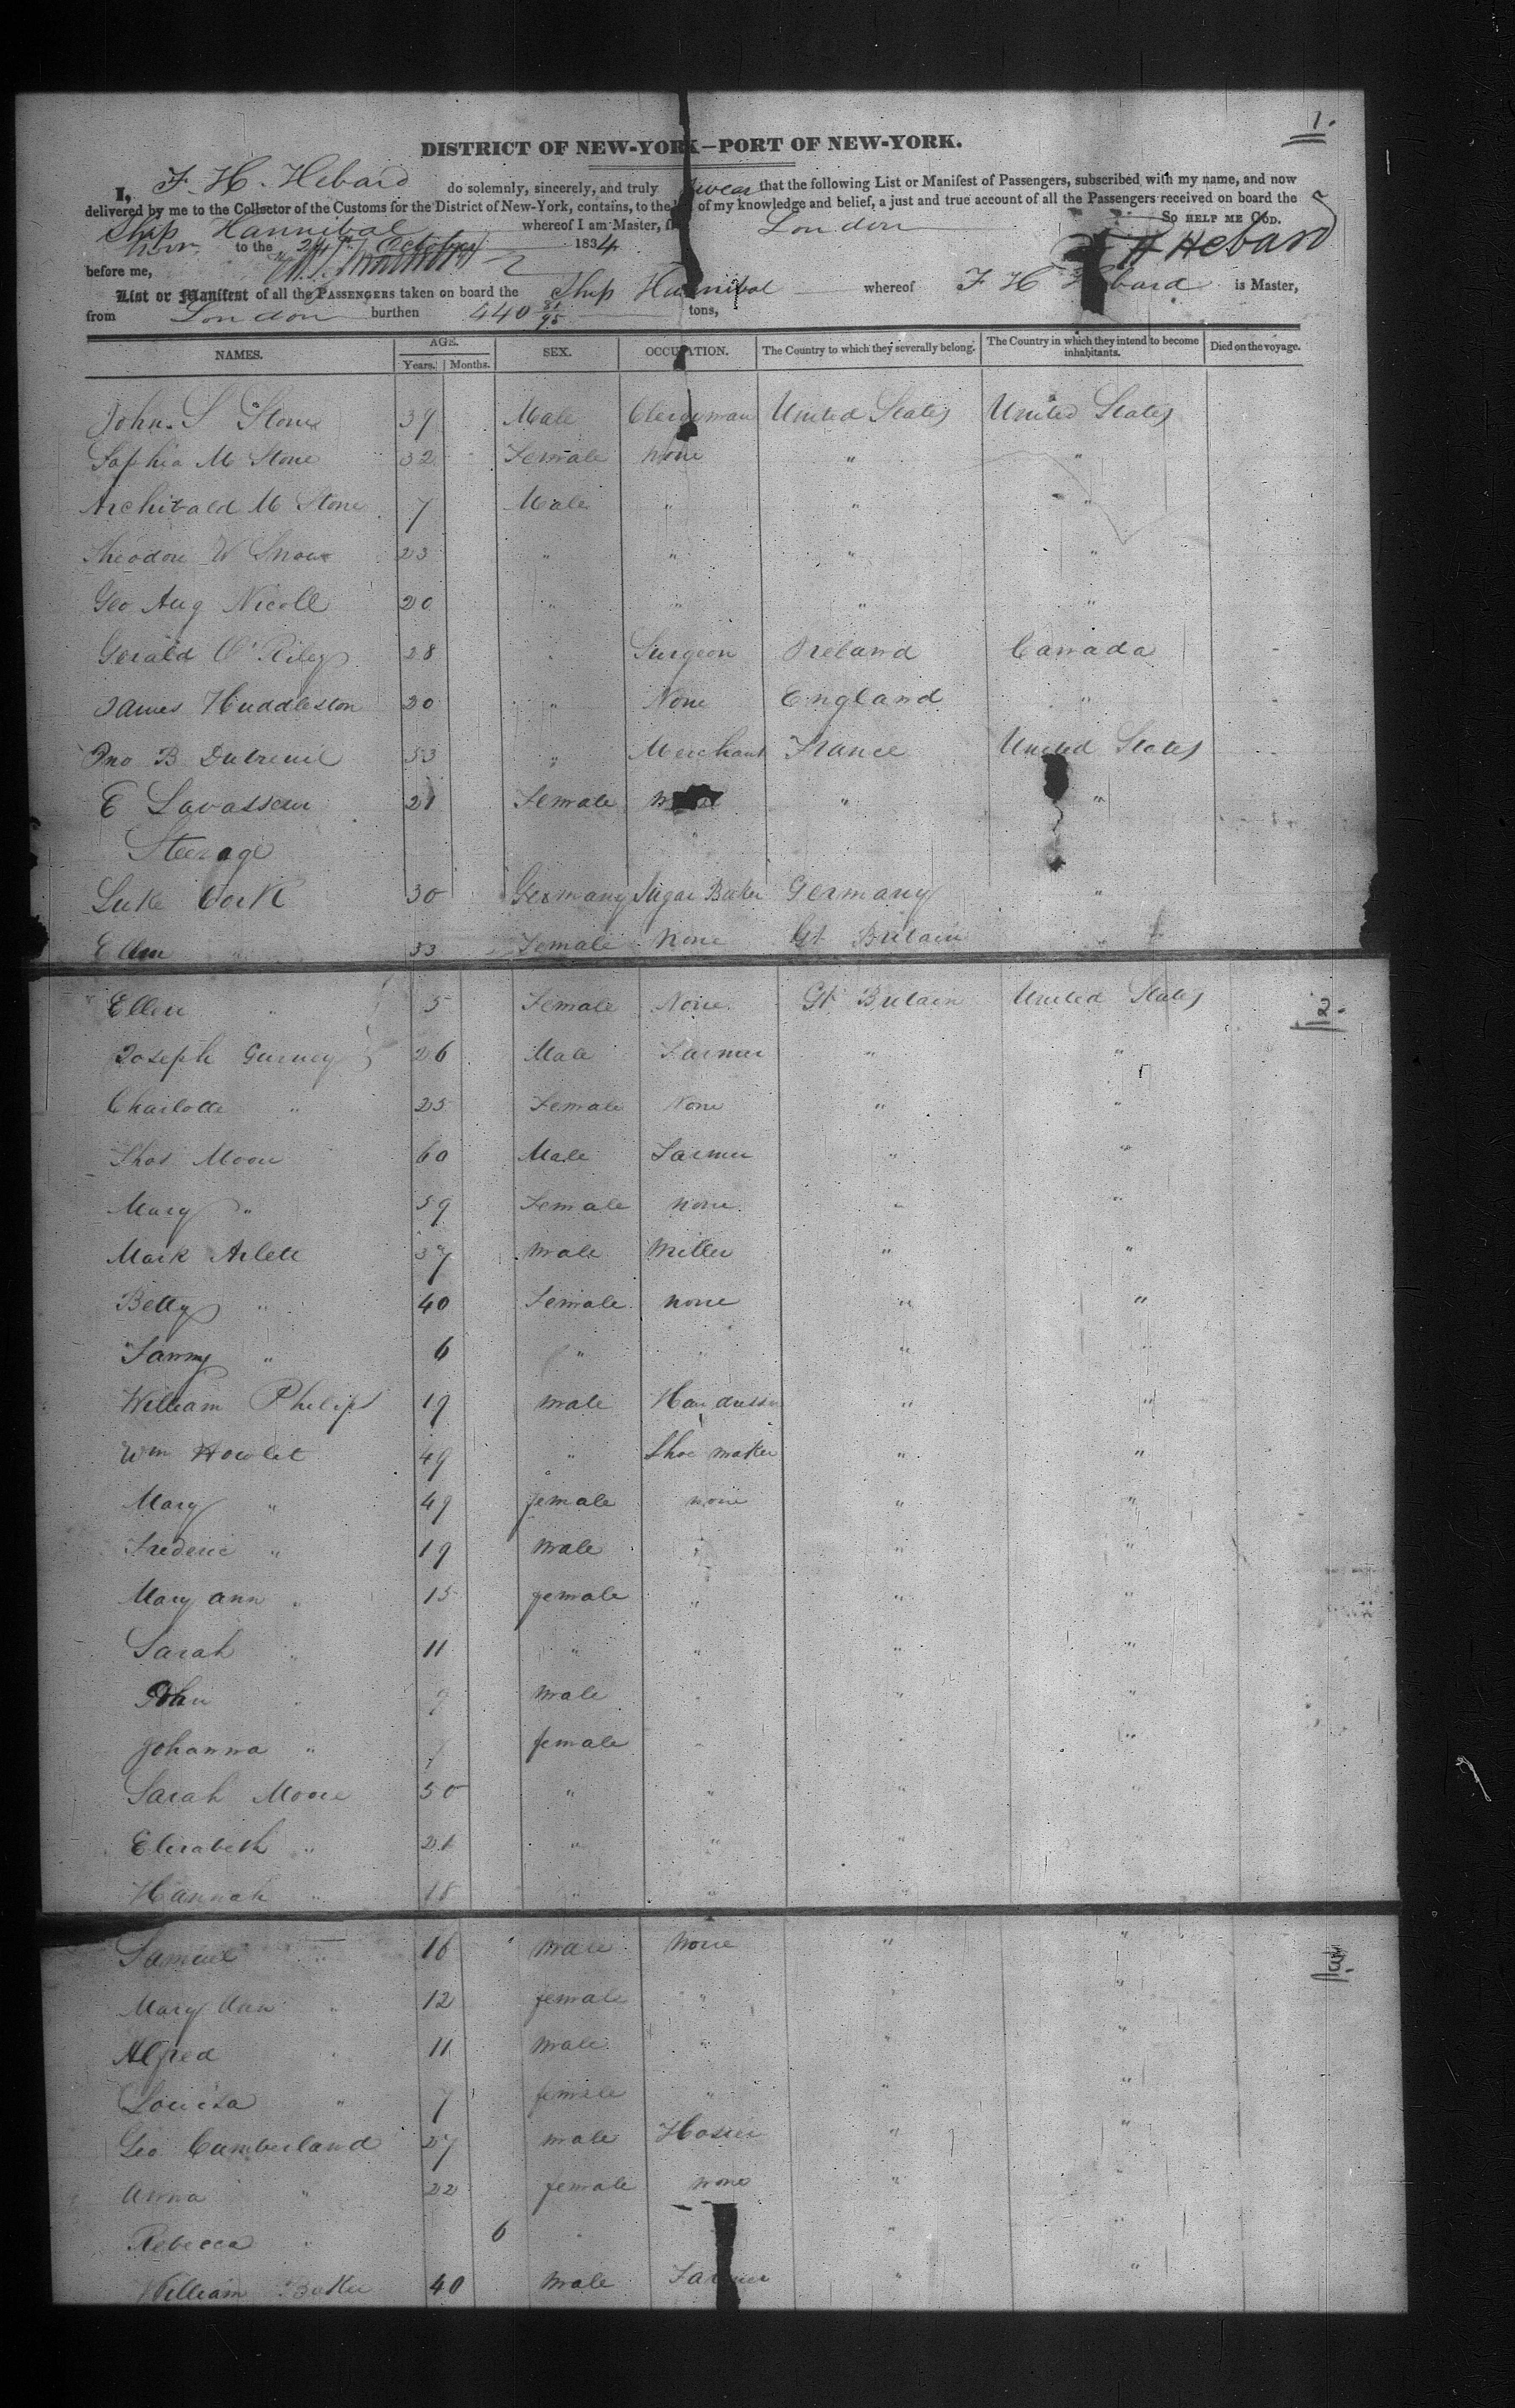 1.
DISTRICT OF NEW-YORK—PORT OF NEW-YORK.
I, F. H. Hebard do solemnly, sincerely, and truly swear that the following List or Manifest of Passengers, subscribed with my name, and now
delivered by me to the Collector of the Customs for the District of New-York, contains, to the of my knowledge and belief, a just and true account of all the Passengers received on board the
Ship Hannibal whereof I am Master, London So HELP ME GOD.
to the 24th October 1834 F H Hebard
before me,
List or Manifest of all the PASSENGERS taken on board the Ship Hannibal whereof F H Hebard is Master,
from London burthen 440 81/95 tons,
NAMES. AGE. Years. Months. SEX. OCCUPATION. The Country to which they severally belong. The Country in which they intend to become inhabitants. Died on the voyage.
John. S Stone 39 Male Clergyman United States United States
Sophia M Stone 32 Female None " "
Archibald M Stone 7 Male " " "
Theodore W Snow 23 " " " "
Geo Aug Nicoll 20 " " " "
Gerald O'Riley 28 " Surgeon Ireland Canada
James Huddleston 20 " None England "
Jno B Dutreuil 53 " Merchant France United States
E Lavasseur 21 Female None " "
Steerage
Luke Cork 30 Germany Sugar Baker Germany "
Ellen " 53 Female None Gt Britain "
2.
Ellen " 5 Female None. Gt Britain United States
Joseph Gurney 26 Male Farmer " "
Charlotte " 25 Female None " "
Thos Moore 60 Male Farmer " "
Mary " 59 Female None " "
Mark Arlett 37 Male Miller " "
Betty " 40 Female none " "
Fanny " 6 " " " "
William Philips 19 male Hair dresser " "
Wm Howlet 49 " Shoe maker " "
Mary " 49 female none " "
Frederic " 19 male " " "
Mary ann " 15 female " " "
Sarah " 11 " " " "
John " 9 male " " "
Johanna " 7 female " " "
Sarah Moore 50 " " " "
Elizabeth " 21 " " "
Hannah " 18 " " "
3.
Samuel " 16 male none " "
Mary Ann " 12 female " " "
Alfred " 11 male " " "
Louisa " 7 female " " "
Geo Cumberland 27 male Hosier " "
Anna " 22 female none " "
Rebecca " 6 " " "
William Baker 40 male Farmer " "